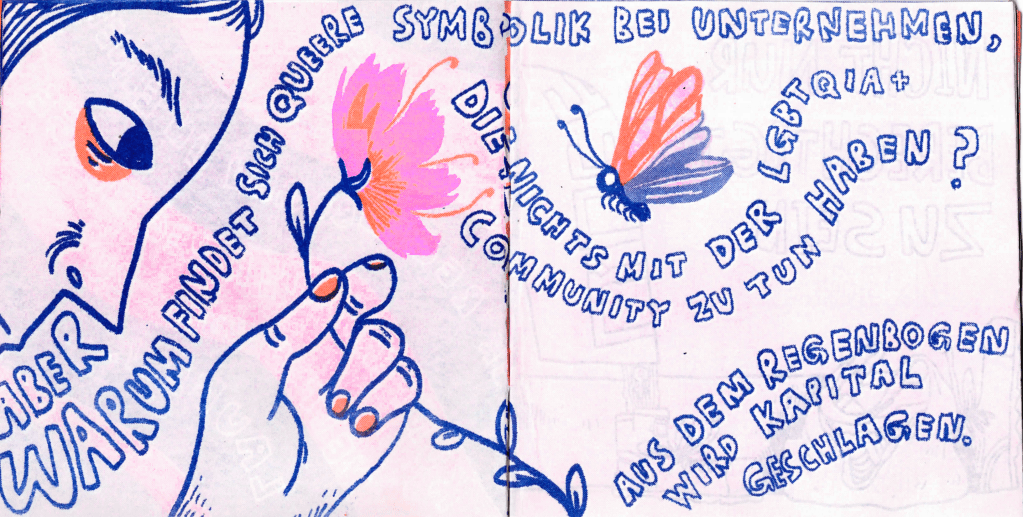 ABER
WARUM FINDET SICH QUEERE SYMBOLIK BEI UNTERNEHMEN,
DIE NICHTS MIT DER LGBTQIA+
COMMUNITY ZU TUN HABEN?
AUS DEM REGENBOGEN
WIRD KAPITAL
GESCHLAGEN.